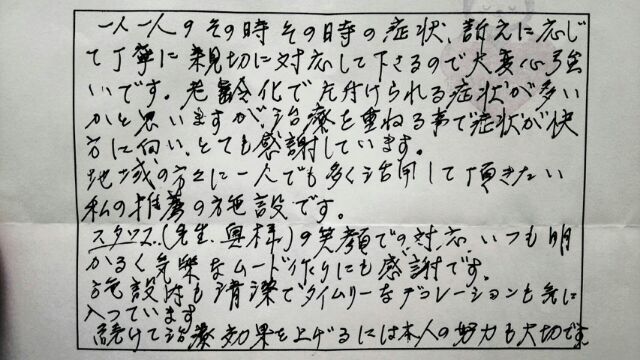 一人一人のその時その日時の症状、訴えに応じ
て丁寧に親切に対応して下さるので大変心強
いです。老齢化で片付けられる症状が多い
かと思いますが、治療を重ねる事で症状が快
方に向い、とても感謝しています。
地域の方々に一人でも多く活用して頂きたい
私の推薦の施設です。
スタッフ、(先生、奥様)の笑顔での対応、いつも明
かるく気楽なムード作りにも感謝です。
施設内も清潔でタイムリーなデコレーションも気に
入っています
続けて治療効果を上げるには本人の努力も大切です